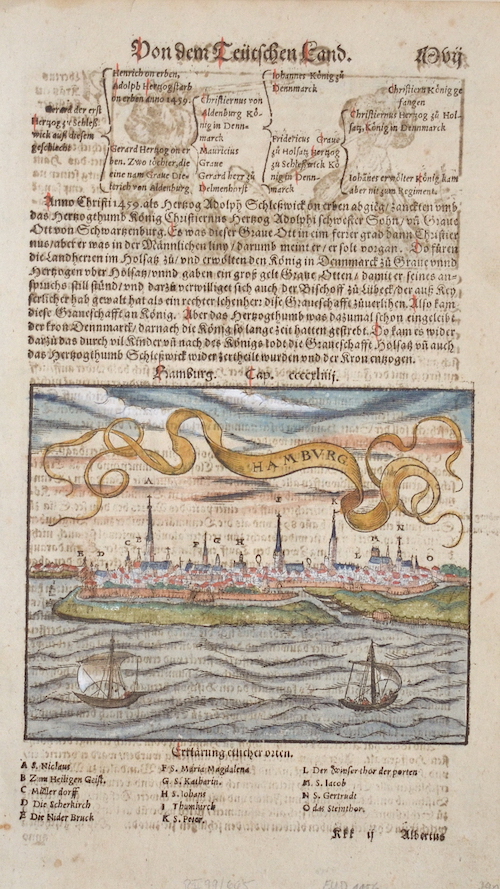 Von dem Teütschen Land.
Henrich on erben,
Adolph Hertzog starb
on erben anno 1459.
Gerard der erst
Hertzog zů Schleß
wick auß diesem
geschlecht
Gerard Hertzog on er
ben. Zwo töchter, die
eine nam Graue Die-
terich von Aldenburg
Christiernus von
Aldenburg Kö-
nig in Denn-
marck
Mauricius
Graue
Gerard herr zů
Delmenhorst
Johannes König zů
Dennmarck
Fridericus Graue
zů Holsatz Hertzog
zů Schleßwick Kö
nig in Denn-
marck
Christiern König ge
fangen
Christiernus Hertzog zů Hol-
satz, König in Dennmarck
Johannes erwölter König kam
aber nit zum Regiment.
Anno Christi 1459. als Hertzog Adolph Schleßwick on erben abgieng, zanckten vmb
das Hertzogthumb König Christiernus Hertzog Adolphi schwester Sohn, vñ Graue
Ott von Schwartzenburg. Es was dieser Graue Ott in eim ferrer grad dann Christier
nus, aber er was in der Männlichen liny, darumb meint er, er solt vorgan. Do fůren
die Landherren im Holsatz zů, vnd erwölten den König in Dennmarck zů Graue vnnd
Hertzogen vber Holsatz, vnnd gaben ein groß gelt Graue Otten, damit er seines an-
spruchs still stůnd, vnd darzů verwilliget sich auch der Bischoff zů Lübeck, der auß Key
serlicher hab gewalt hat als ein rechter lehenherr, dise Graueschafft zů uerlihen. Also kam
diese Graueschafft an König. Aber das Hertzogthumb was dazumal schon eingeleibt
der kron Dennmarck, darnach die König so lange zeit hatten gestrebt. Do kam es wider
darzů das durch vil Kinder vñ nach des Königs todt die Graueschafft Holsatz vñ auch
das Hertzogthumb Schleßwick wider zertheilt wurden vnd der Kron entzogen.
Hamburg. Cap. ccccxliij.
HAMBVRG
A
I K
Erklärung etlicher orten.
A S. Niclaus
B Zum Heiligen Geist.
C Müller dorff
D Die Scherkirch
E Die Nider Bruck
F S. Maria Magdalena
G S. Katharin.
H S. Johans
I Thumkirch
K S. Peter.
L Der Zwserthor der porten
M S. Jacob
N S. Gertrudt
O das Steinthor.
Kkk ij Albertus